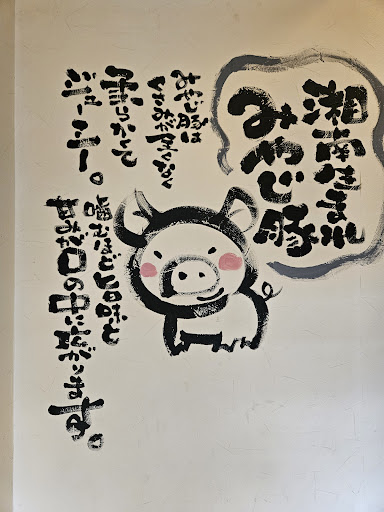 湘南生まれ
みやじ豚
みやじ豚は
くさみが全くなく
柔らかくて
ジューシー。
噛むほど旨味と
甘みが口の中に広がります。